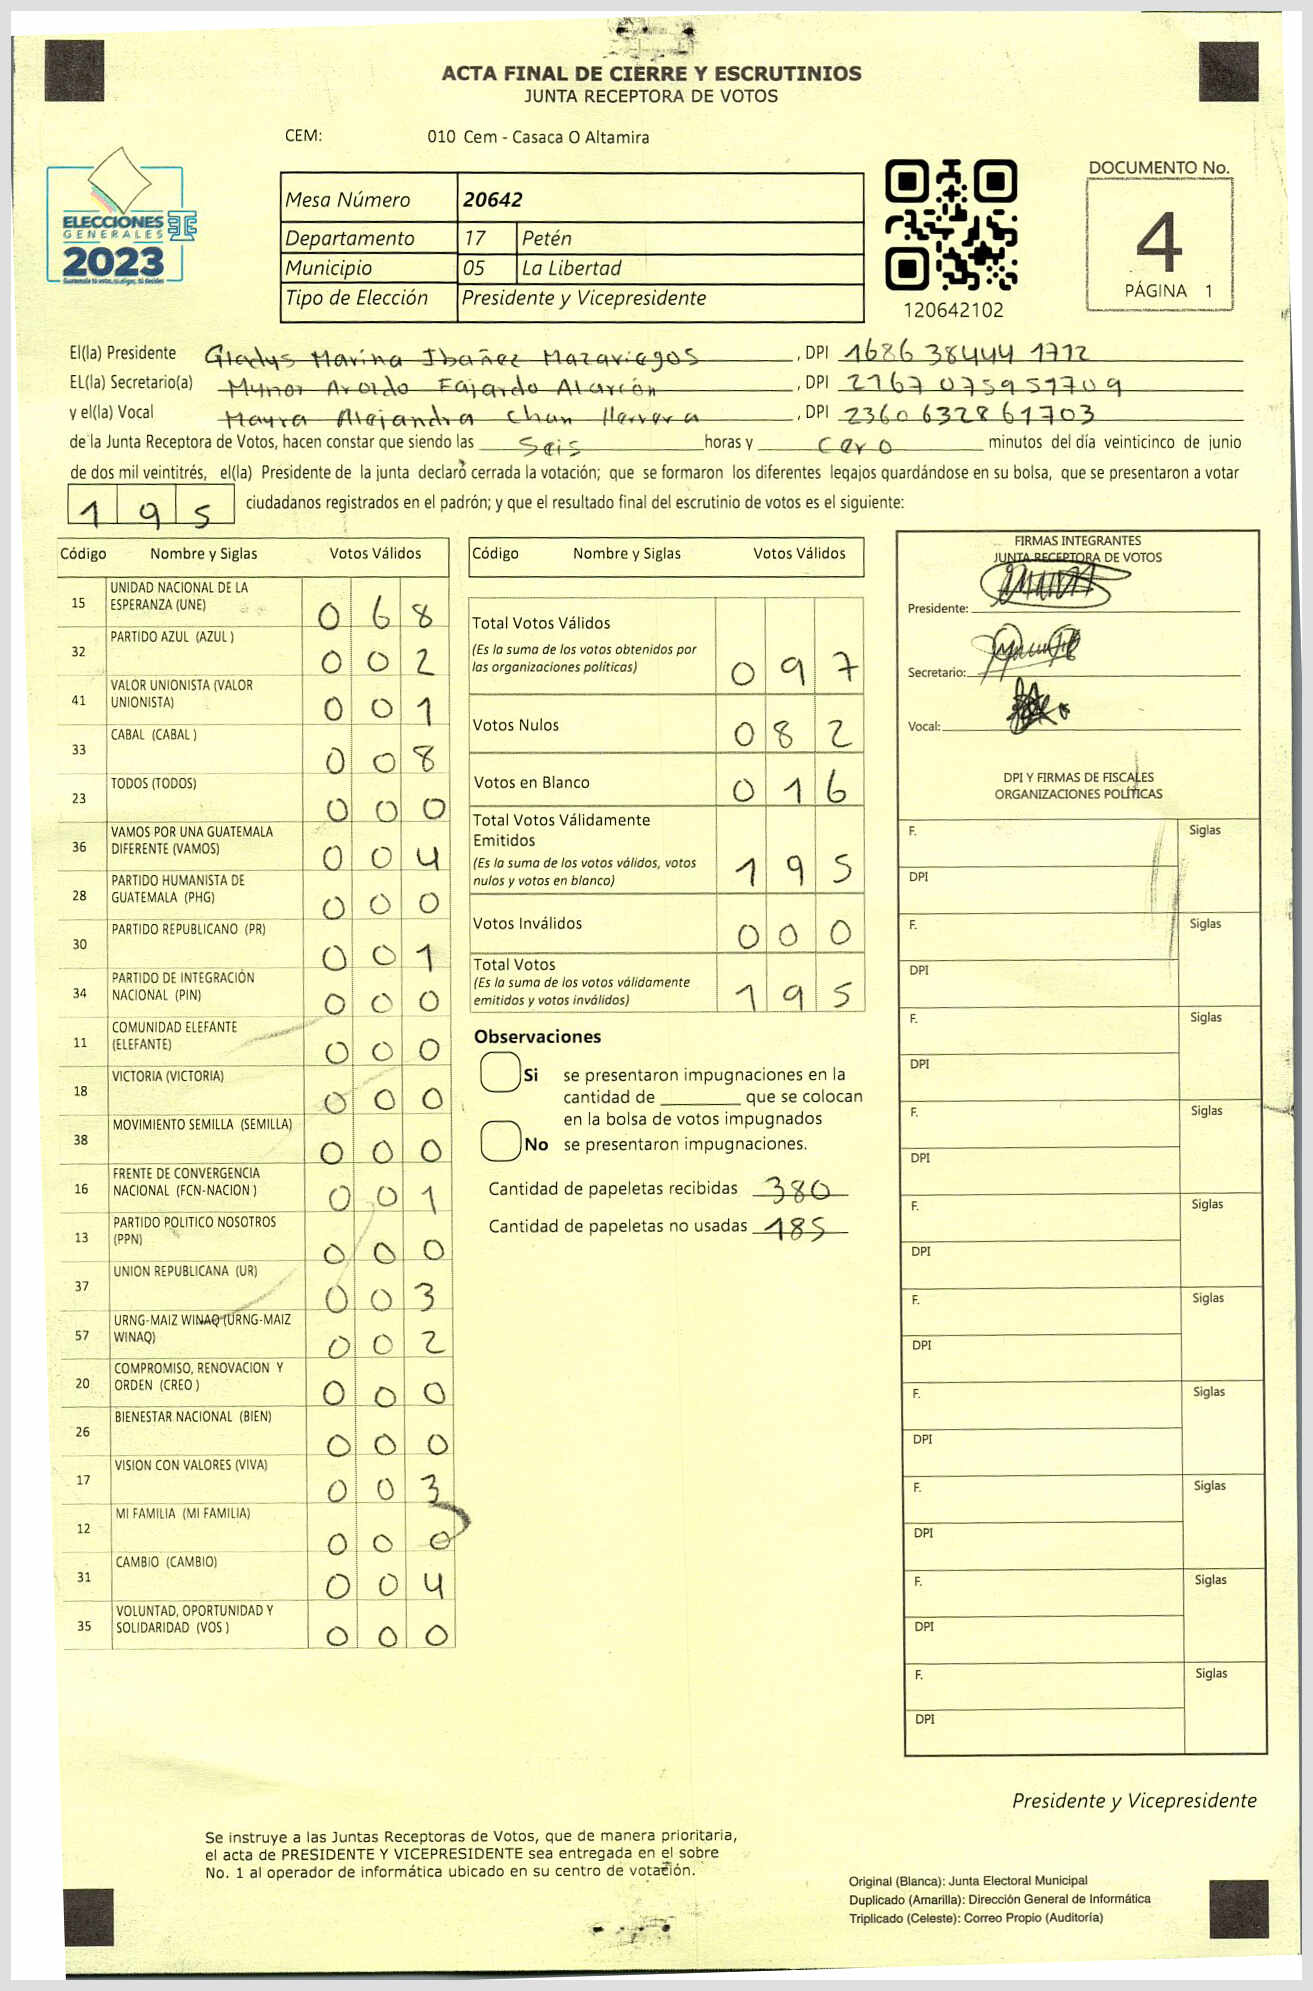 ACTA FINAL DE CIERRE Y ESCRUTINIOS
JUNTA RECEPTORA DE VOTOS
CEM: 010 Cem - Casaca O Altamira
ELECCIONES
GENERALES
2023
Mesa Número 20642
Departamento 17 Petén
Municipio 05 La Libertad
Tipo de Elección Presidente y Vicepresidente
120642102
DOCUMENTO No.
4
PÁGINA 1
El(la) Presidente Gladys Marina Ibañez Mazariegos, DPI 1686 38444 1712
EL(la) Secretario(a) Mynor Aroldo Fajardo Alarcón, DPI 2167 07595 1709
y el(la) Vocal Mayra Alejandra Chan Herrera, DPI 2360 63286 1703
de la Junta Receptora de Votos, hacen constar que siendo las Seis horas y Cero minutos del día veinticinco de junio
de dos mil veintitrés, el(la) Presidente de la junta declaró cerrada la votación; que se formaron los diferentes legajos guardándose en su bolsa, que se presentaron a votar
195 ciudadanos registrados en el padrón; y que el resultado final del escrutinio de votos es el siguiente:
Código Nombre y Siglas Votos Válidos
15 UNIDAD NACIONAL DE LA ESPERANZA (UNE) 068
32 PARTIDO AZUL (AZUL ) 002
41 VALOR UNIONISTA (VALOR UNIONISTA) 001
33 CABAL (CABAL ) 008
23 TODOS (TODOS) 000
36 VAMOS POR UNA GUATEMALA DIFERENTE (VAMOS) 004
28 PARTIDO HUMANISTA DE GUATEMALA (PHG) 000
30 PARTIDO REPUBLICANO (PR) 001
34 PARTIDO DE INTEGRACIÓN NACIONAL (PIN) 000
11 COMUNIDAD ELEFANTE (ELEFANTE) 000
18 VICTORIA (VICTORIA) 000
38 MOVIMIENTO SEMILLA (SEMILLA) 000
16 FRENTE DE CONVERGENCIA NACIONAL (FCN-NACION ) 001
13 PARTIDO POLITICO NOSOTROS (PPN) 000
37 UNION REPUBLICANA (UR) 003
57 URNG-MAIZ WINAQ (URNG-MAIZ WINAQ) 002
20 COMPROMISO, RENOVACION Y ORDEN (CREO ) 000
26 BIENESTAR NACIONAL (BIEN) 000
17 VISION CON VALORES (VIVA) 003
12 MI FAMILIA (MI FAMILIA) 000
31 CAMBIO (CAMBIO) 004
35 VOLUNTAD, OPORTUNIDAD Y SOLIDARIDAD (VOS ) 000
Código Nombre y Siglas Votos Válidos
Total Votos Válidos 097
(Es la suma de los votos obtenidos por
las organizaciones políticas)
Votos Nulos 082
Votos en Blanco 016
Total Votos Válidamente
Emitidos 195
(Es la suma de los votos válidos, votos
nulos y votos en blanco)
Votos Inválidos 000
Total Votos 195
(Es la suma de los votos válidamente
emitidos y votos inválidos)
Observaciones
Si se presentaron impugnaciones en la
cantidad de ________ que se colocan
en la bolsa de votos impugnados
No se presentaron impugnaciones.
Cantidad de papeletas recibidas 380
Cantidad de papeletas no usadas 185
FIRMAS INTEGRANTES
JUNTA RECEPTORA DE VOTOS
Presidente:
Secretario:
Vocal:
DPI Y FIRMAS DE FISCALES
ORGANIZACIONES POLÍTICAS
F. Siglas
DPI
F. Siglas
DPI
F. Siglas
DPI
F. Siglas
DPI
F. Siglas
DPI
F. Siglas
DPI
F. Siglas
DPI
F. Siglas
DPI
F. Siglas
DPI
F. Siglas
DPI
Presidente y Vicepresidente
Se instruye a las Juntas Receptoras de Votos, que de manera prioritaria,
el acta de PRESIDENTE Y VICEPRESIDENTE sea entregada en el sobre
No. 1 al operador de informática ubicado en su centro de votación.
Original (Blanca): Junta Electoral Municipal
Duplicado (Amarilla): Dirección General de Informática
Triplicado (Celeste): Correo Propio (Auditoría)